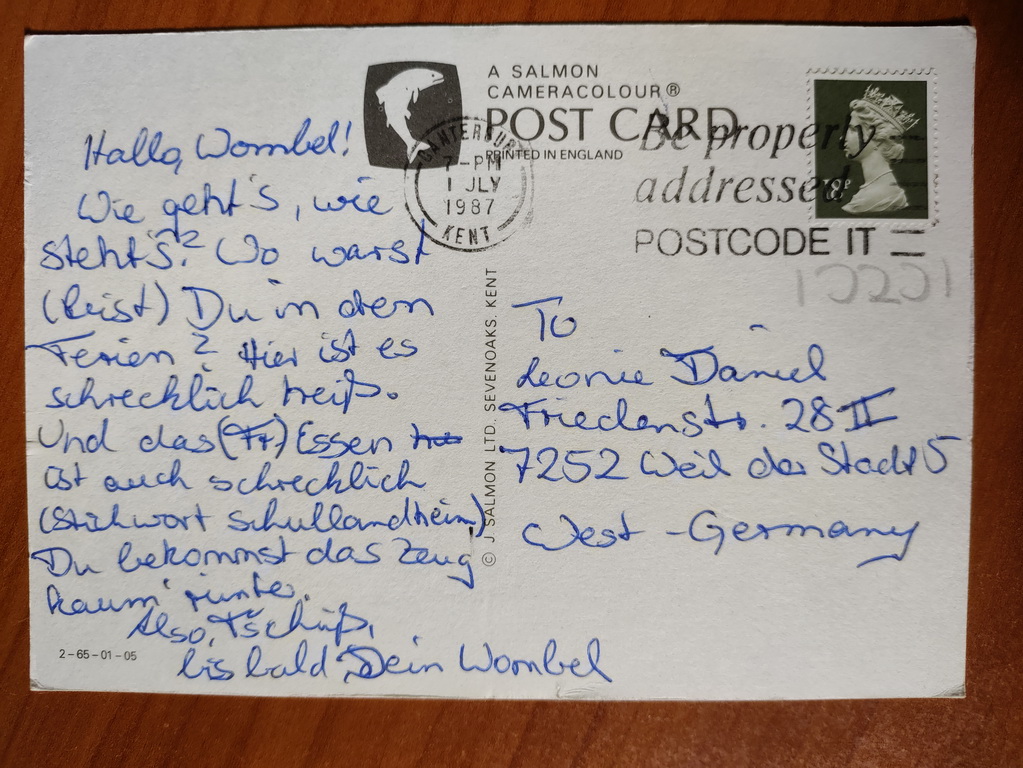 A SALMON
CAMERACOLOUR®
POST CARD
PRINTED IN ENGLAND
CANTERBURY
7-PM
1 JLY
1987
KENT
Be properly
addressed
POSTCODE IT
18P
Hallo, Wombel!
Wie geht's, wie
steht's? Wo warst
(bist) Du in den
Ferien? Hier ist es
schrecklich heiß.
Und das (Fr) Essen
ist auch schrecklich
(Stichwort Schullandheim)
Du bekommst das Zeug
kaum runter.
Also, Tschüß,
bis bald Dein Wombel
2-65-01-05
© J. SALMON LTD. SEVENOAKS. KENT
To
Leonie Daniel
Friedenstr. 28 II
7252 Weil der Stadt 5
West-Germany